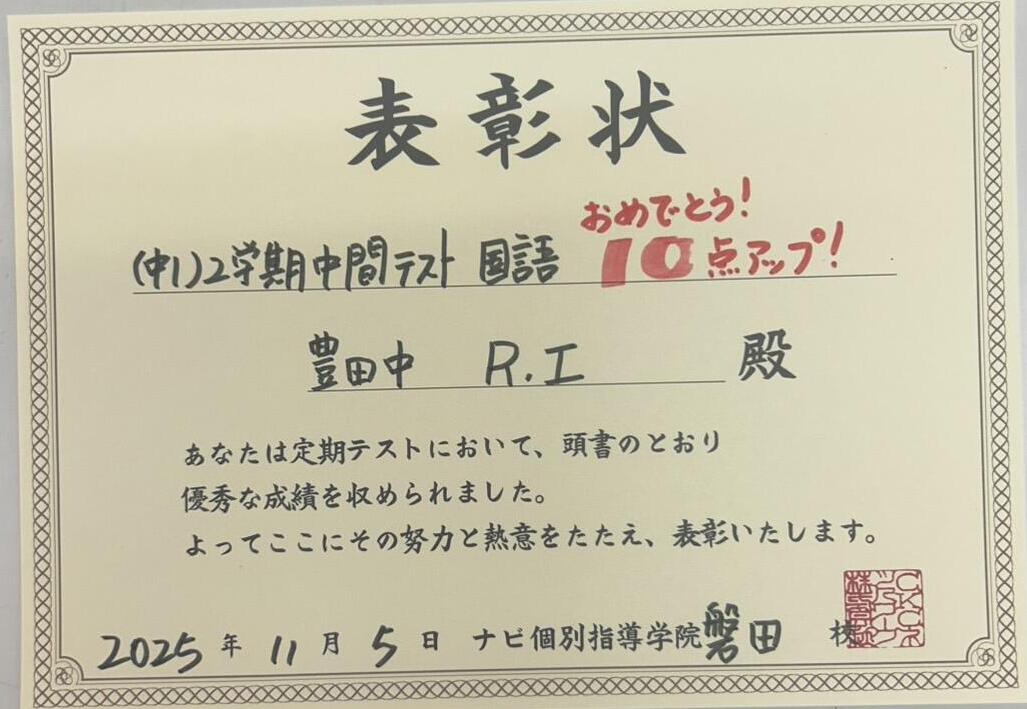 表彰状
おめでとう!
(中1)2学期中間テスト 国語 10点アップ!
豊田中 R.I 殿
あなたは定期テストにおいて、頭書のとおり
優秀な成績を収められました。
よってここにその努力と熱意をたたえ、表彰いたします。
2025年11月5日 ナビ個別指導学院磐田 校